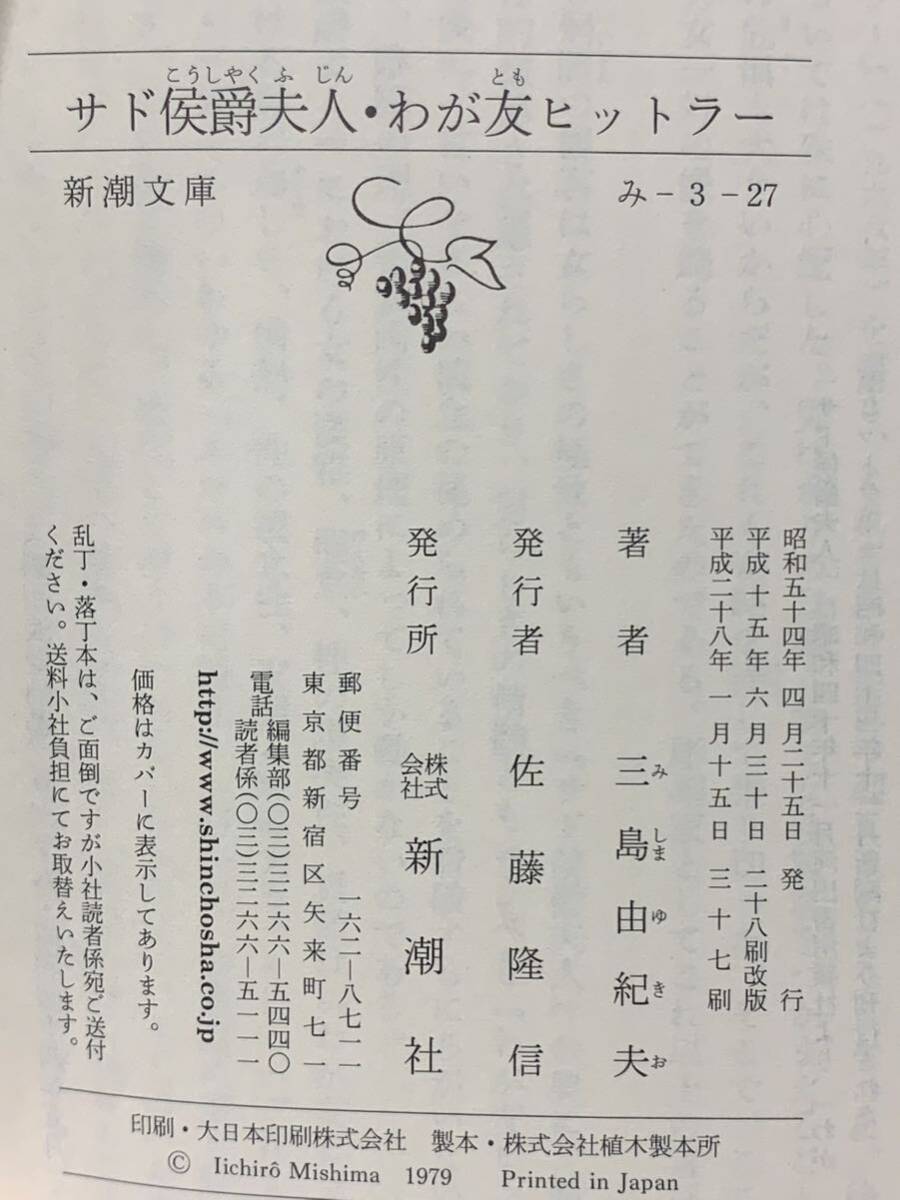 こうしゃく ふ じん とも
サド侯爵夫人・わが友ヒットラー
新潮文庫 み-3-27
昭和五十四年 四月二十五日 発行
平成十五年 六月三十日 二十八刷改版
平成二十八年 一月十五日 三十七刷
著者 三島由紀夫
み しま ゆ き お
発行者 佐藤隆信
発行所 株式会社 新潮社
郵便番号 一六二―八七一一
東京都新宿区矢来町七一
電話 編集部(〇三)三二六六―五四四〇
読者係(〇三)三二六六―五一一一
http://www.shinchosha.co.jp
価格はカバーに表示してあります。
乱丁・落丁本は、ご面倒ですが小社読者係宛ご送付
ください。送料小社負担にてお取替えいたします。
印刷・大日本印刷株式会社 製本・株式会社植木製本所
© Iichirô Mishima 1979 Printed in Japan